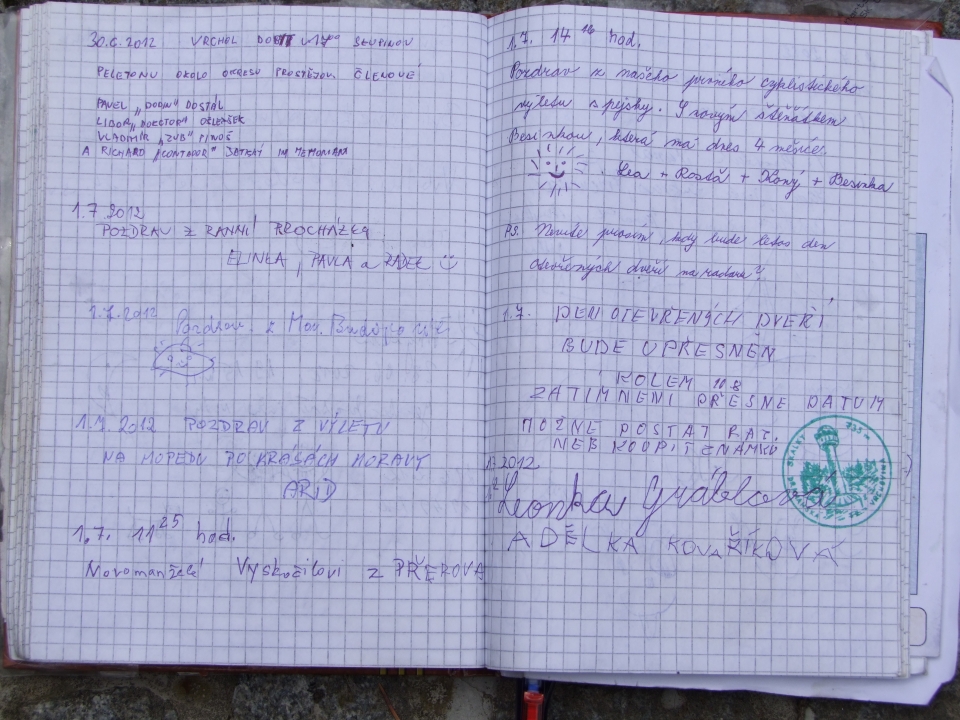 30.6.2012 VRCHOL DOBYT V 17⁰⁰ SKUPINOU
PELETONU OKOLO OKRESU PROSTĚJOV ČLENOVÉ
PAVEL „DODIN“ DOSTÁL
LIBOR „DOKTOR“ OHLÍDEK
VLADIMÍR „ZUB“
A RICHARD „CONTADOR“ IN MEMORIAM
1.7.2012
POZDRAV Z RANNÍ PROCHÁZKY
ELINKA, PAVLA a RADEK
1.7.2012 Pozdrav z Mor. Budějovic
1.7.2012 POZDRAV Z VÝLETU
NA MOPEDU PO KRÁSÁCH MORAVY
1.7. 11²⁵ hod.
Novomanželé Vyskočilovi z PŘEROVA
1.7. 14¹⁶ hod.
Pozdrav z našeho prvního cyklistického
výletu s pejsky. S novým štěňátkem
Besinkou, která má dnes 4 měsíce.
Lea + Rosťa + Kony + Besinka
PS. Nevíte prosím, kdy bude letos den
otevřených dveří na radaru?
1.7. DEN OTEVŘENÝCH DVEŘÍ
BUDE UPŘESNĚN
KOLEM 10.8
ZATÍM NENÍ PŘESNÉ DATUM
MOŽNÉ POSTAT RAZ.
NEB KOUPIT ZNÁMKU
2012
Leonka Gráblová
ADÉLKA KOVAŘÍKOVÁ
SKALKY 735 m